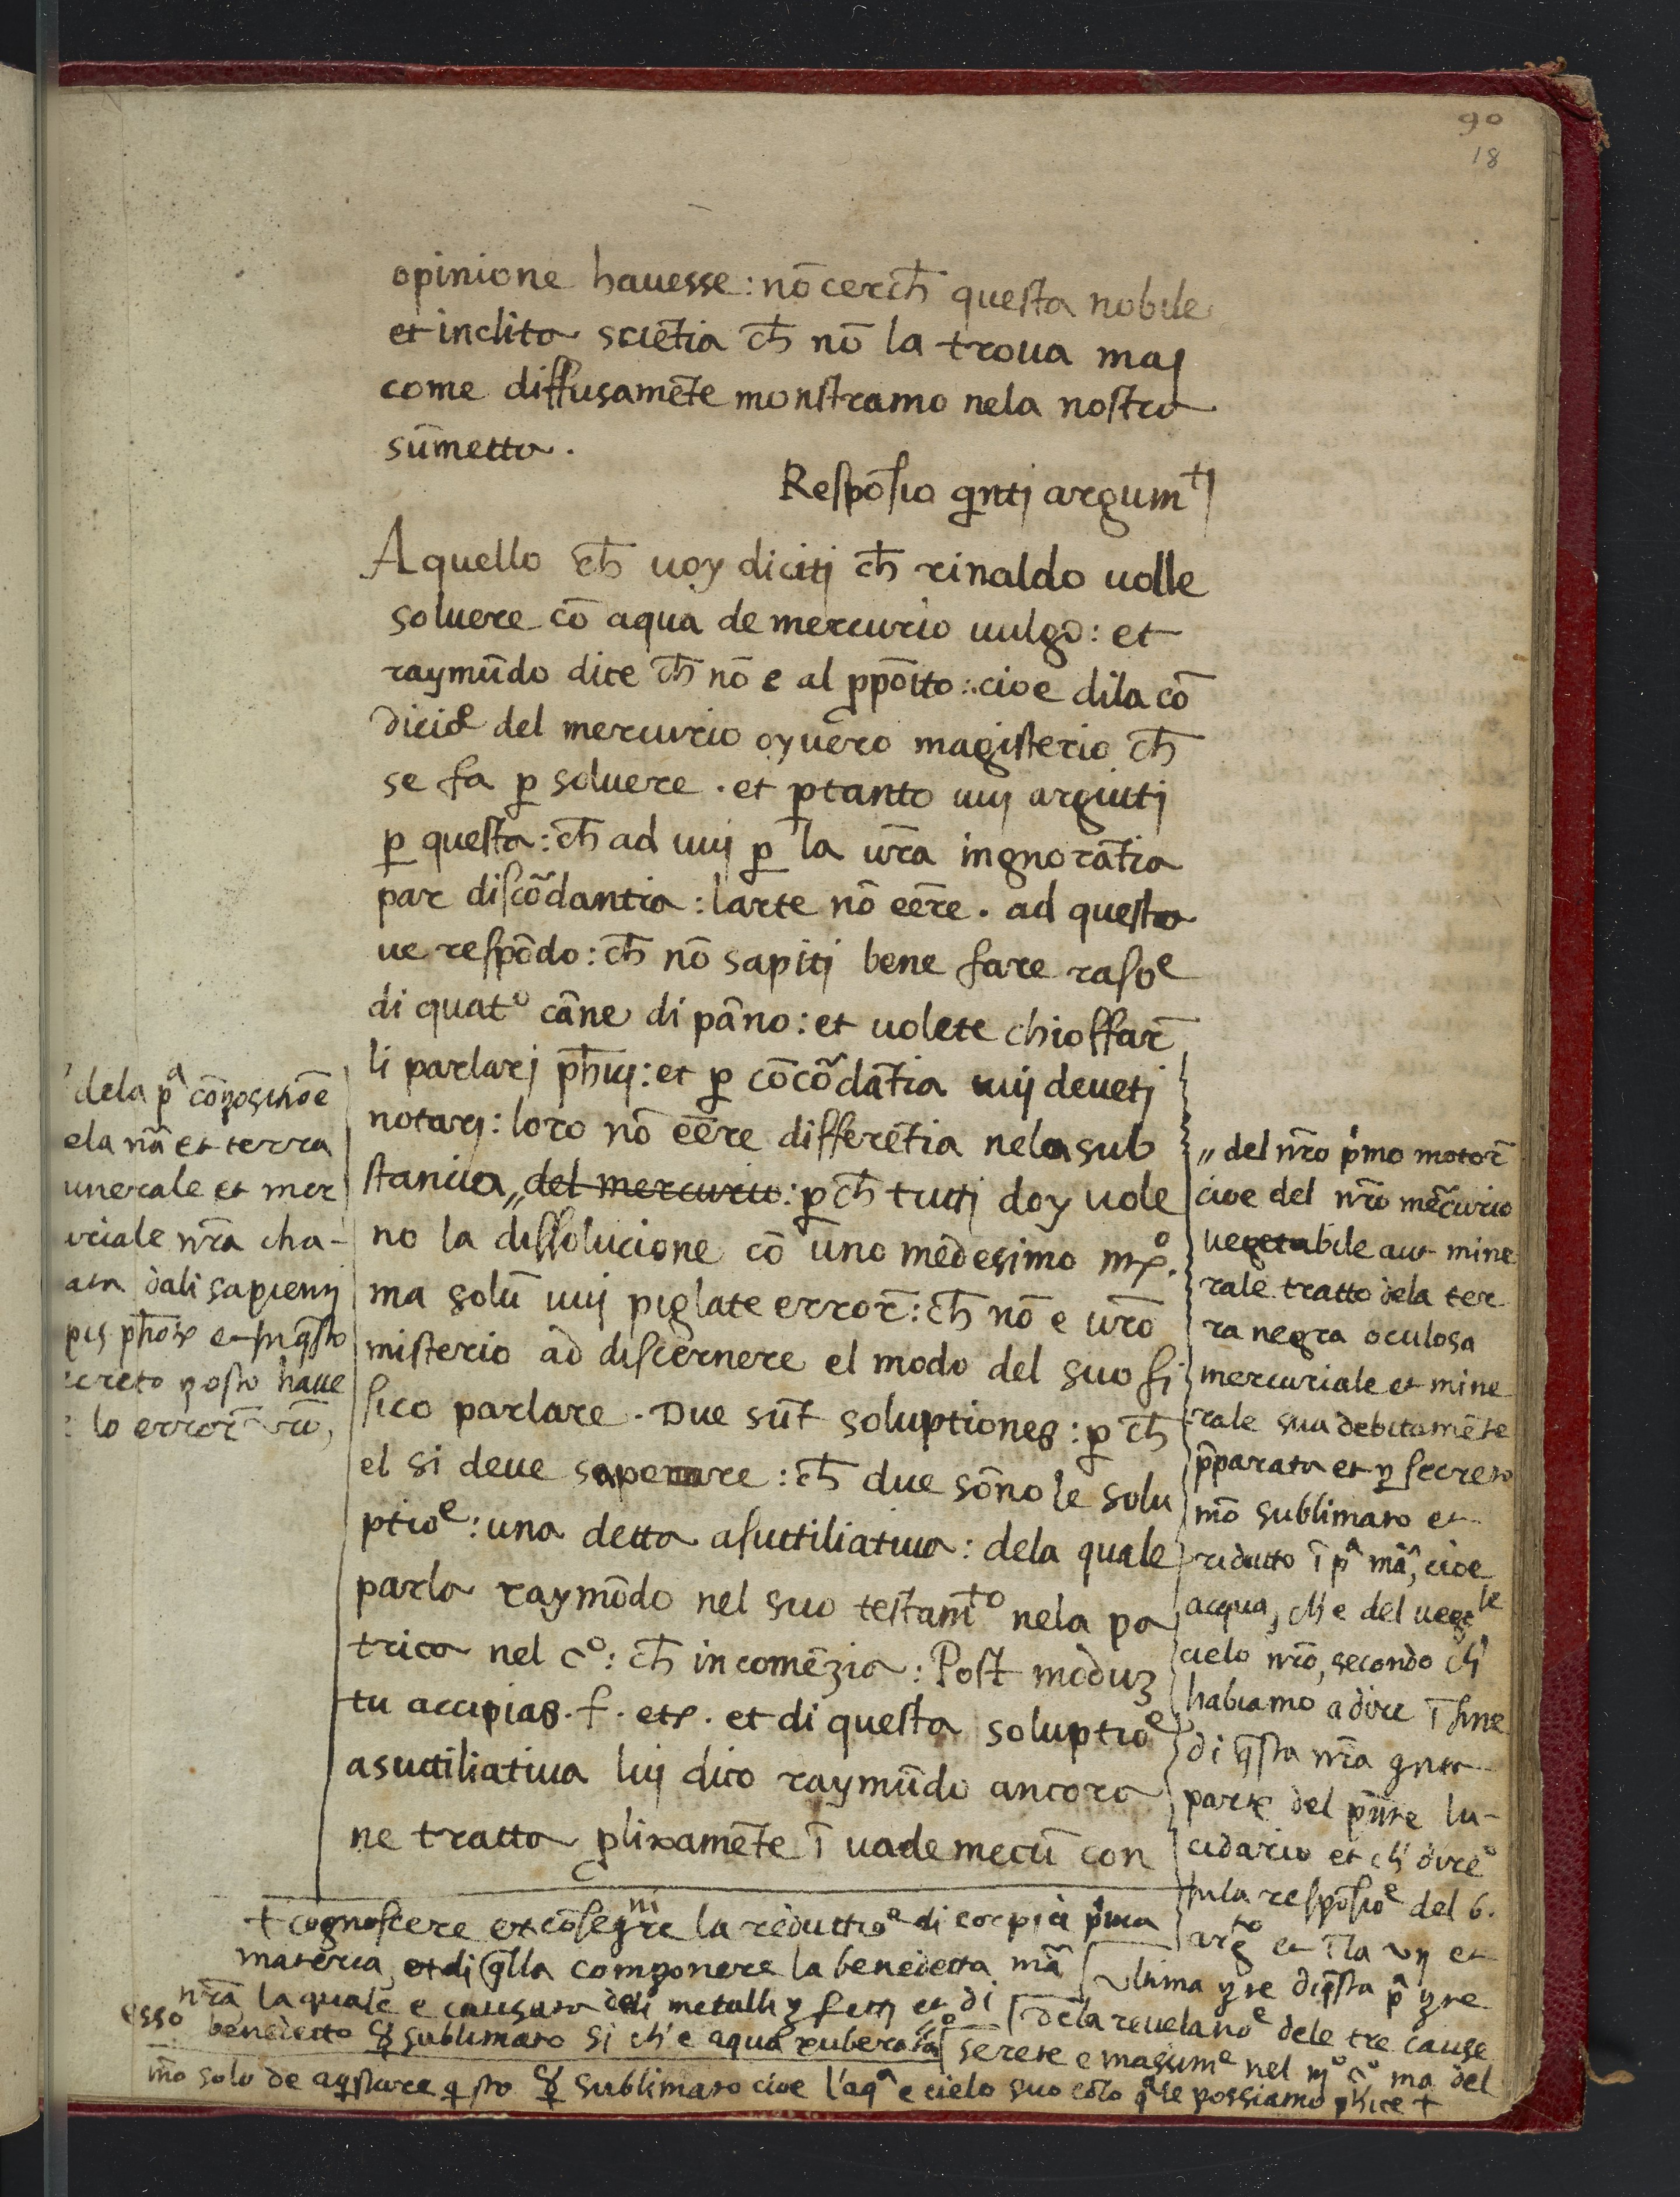 90
18
opinione hauesse: nō cerch̄ questa nobile
et inclita sciētia ch̄ nō la troua maj
come diffusamēte monstramo nela nostra
sūmetta.
Respōsio qntj argumtj
A quello ch̄ uoy dicitj ch̄ rinaldo uolle
soluere cō aqua de mercurio uulgo: et
raymūdo dice ch̄ nō e al ꝓpōito: cioe dila cō
dicioe del mercurio oyuero magisterio ch̄
se fa ꝑ soluere. et ꝑtanto uuj arguitj
ꝑ questa: ch̄ ad uuj ꝑ la ur̄a ingnorātia
par discōdantia: larte nō eēre. ad questo
ue respōdo: ch̄ nō sapitj bene fare rasoe
di quato cāne di pāno: et uolete chioffar̄
li parlarj ph̄ij: et ꝑ cōcōdātia uuj deuetj
notarj: loro nō eēre differētia nela sub
stancia „ del mercurio: ꝑch̄ tuttj doy uole
no la dissolucione cō uno medesimo mo.
ma solū uuj piglate error̄: ch̄ nō e ur̄o
misterio ad discernere el modo del suo fi
sico parlare. Due sūt soluptiones: ꝑ ch̄
el si deue sapere: ch̄ due sōno le solu
ptioe: una detta asuttiliatiua: dela quale
parla raymōdo nel suo testamto nela pa
trica nel co: ch̄ incomēzia: Post moduz
tu accipias. f. etc. et di questa soluptioe
asuttiliatiua luj dico raymūdo ancora
ne tratta ꝓlixamēte ī uade mecū con
dela pa cōposinōe
ela nā et terra
unerale et mer
uriale nr̄a cha-
ata dali sapientj
ecreto posto haue
lo error̄ ur̄o,
„ del nr̄o pimo motor̄
cioe del nr̄o mercurio
uegetabile aut mine
rale tratto dela ter
ra negra oculosa
mercuriale et mine
rale sua debitamēte
p̄parata et ꝑ secreto
mō sublimato et
ridutto ī pa mā, cioe
acqua, ch' e del uegle
cielo nr̄o, secondo ch'
habiamo a dire ī fine
di q̄sta nr̄a qnta
parte del pn̄te lu-
cidario et ch' direo
nela respōsioe del 6.
argto et ī la et
ultima pte diq̄sta pa pte
dela reuelanoe dele tre cause
serete e masume nel mo co ma del
+ cognoscere et cōsegnire la reduttioe di corpi ī pima
materia, et di q̄lla componere la benedetta mā
nr̄a la quale e causata deli metalli et di
esso benedetto sublimato si ch' e aqua
mō solo de aqstare qsto sublimato cioe l'aqa e cielo suo possiamo +